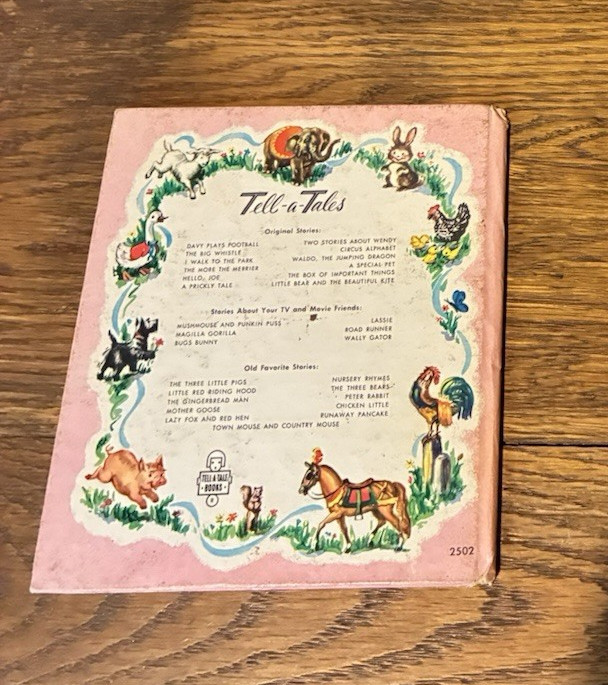 Tell-a-Tales
Original Stories:
DAVY PLAYS FOOTBALL
THE BIG WHISTLE
I WALK TO THE PARK
THE MORE THE MERRIER
HELLO, JOE
A PRICKLY TALE
TWO STORIES ABOUT WENDY
CIRCUS ALPHABET
WALDO, THE JUMPING DRAGON
A SPECIAL PET
THE BOX OF IMPORTANT THINGS
LITTLE BEAR AND THE BEAUTIFUL KITE
Stories About Your TV and Movie Friends:
MUSHMOUSE AND PUNKIN PUSS
MAGILLA GORILLA
BUGS BUNNY
LASSIE
ROAD RUNNER
WALLY GATOR
Old Favorite Stories:
THE THREE LITTLE PIGS
LITTLE RED RIDING HOOD
THE GINGERBREAD MAN
MOTHER GOOSE
LAZY FOX AND RED HEN
NURSERY RHYMES
THE THREE BEARS
PETER RABBIT
CHICKEN LITTLE
RUNAWAY PANCAKE
TOWN MOUSE AND COUNTRY MOUSE
TELL-A-TALE
BOOKS
2502